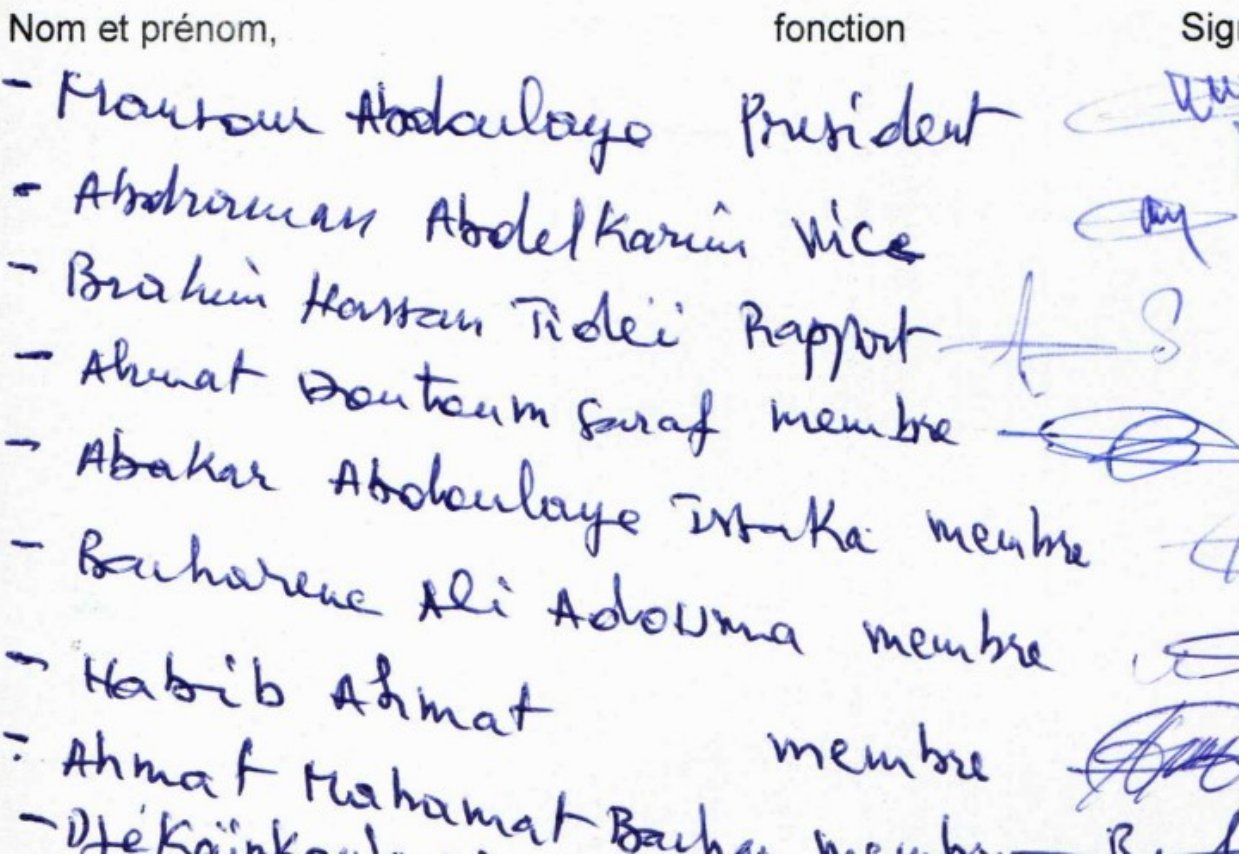 Nom et prénom, fonction
- Mansour Abdoulaye President
- Abdraman Abdelkarim Vice
- Brahim Hassan Tidei Rapport
- Ahmat Doutoum Saraf membre
- Abakar Abdoulaye Issaka membre
- Bacharene Ali Adouma membre
- Habib Ahmat membre
- Ahmat Mahamat Bachar membre